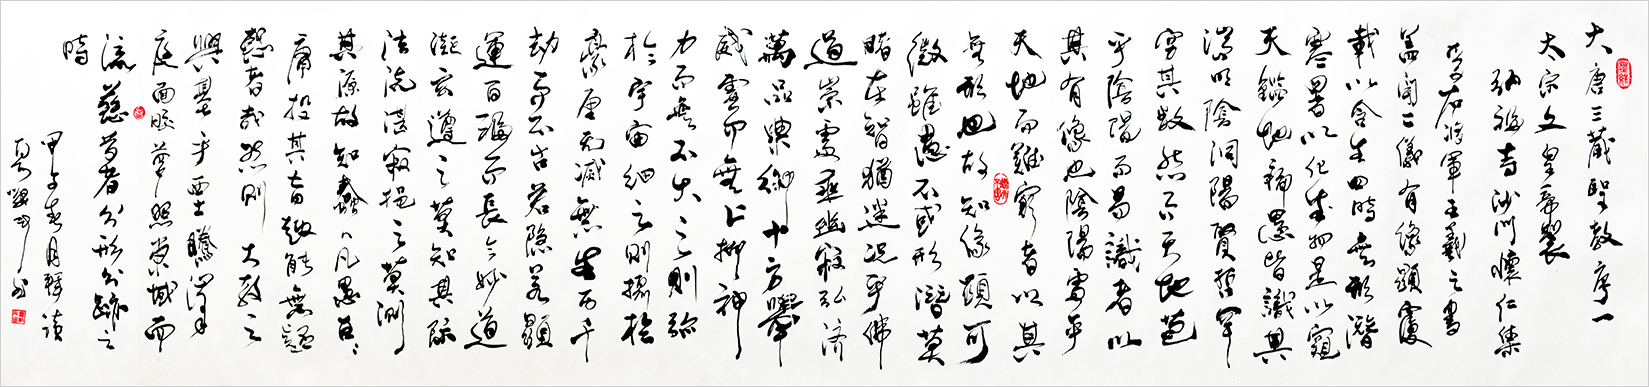 大唐三藏聖教序一
太宗文皇帝製
弘福寺沙門懷仁集
晉右將軍王羲之書
盖聞二儀有像顯覆
載以含生四時無形潛
寒暑以化物是以窺
天鑑地庸愚皆識其
端明陰洞陽賢哲罕
窮其數然而天地苞
乎陰陽而易識者以
其有像也陰陽處乎
天地而難窮者以其
無形也故知像顯可
徵雖愚不惑形潛莫
睹在智猶迷況乎佛
道崇虛乘幽寂弘济
萬品典御十方舉
威靈而無上抑神
力而無下大之則弥
於宇宙細之則攝於
豪厘無滅無生歷千
劫而不古若隱若顯
運百福而長今妙道
凝玄遵之莫知其際
法流湛寂挹之莫測
其源故知蠢〻凡愚區〻
庸投其旨趣能無疑
惑者哉然則大教之
興基乎西土騰漢
庭而皎夢照東域而
流慈昔者分形分跡之
時
甲子春月